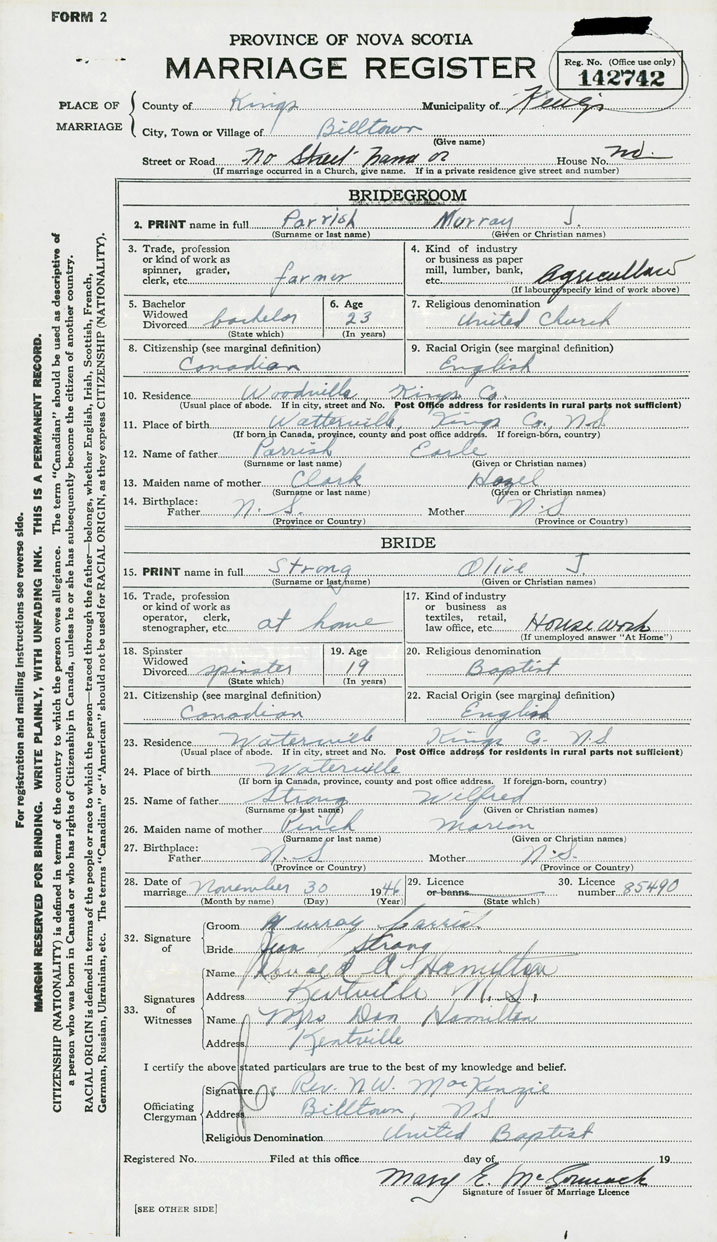 FORM 2
PROVINCE OF NOVA SCOTIA
MARRIAGE REGISTER
Reg. No. (Office use only)
142742
PLACE OF MARRIAGE
County of Kings Municipality of Kings
City, Town or Village of Billtown
(Give name)
Street or Road No Street name or House No. no.
(If marriage occurred in a Church, give name. If in a private residence give street and number)
BRIDEGROOM
2. PRINT name in full Parrish Murray J.
(Surname or last name) (Given or Christian names)
3. Trade, profession or kind of work as spinner, grader, clerk, etc. farmer
4. Kind of industry or business as paper mill, lumber, bank, etc. Agriculture
(If labourer specify kind of work above)
5. Bachelor Widowed Divorced bachelor
(State which)
6. Age 23
(In years)
7. Religious denomination
United Church
8. Citizenship (see marginal definition)
Canadian
9. Racial Origin (see marginal definition)
English
10. Residence Woodville, Kings Co.
(Usual place of abode. If in city, street and No. Post Office address for residents in rural parts not sufficient)
11. Place of birth Watterville, Kings Co., N.S.
(If born in Canada, province, county and post office address. If foreign-born, country)
12. Name of father Parrish Earle
(Surname or last name) (Given or Christian names)
13. Maiden name of mother Clark Hazel
(Surname or last name) (Given or Christian names)
14. Birthplace: Father N.S. Mother N.S.
(Province or Country) (Province or Country)
BRIDE
15. PRINT name in full Strong Olive J.
(Surname or last name) (Given or Christian names)
16. Trade, profession or kind of work as operator, clerk, stenographer, etc. at home
17. Kind of industry or business as textiles, retail, law office, etc. Housework
(If unemployed answer "At Home")
18. Spinster Widowed Divorced spinster
(State which)
19. Age 19
(In years)
20. Religious denomination
Baptist
21. Citizenship (see marginal definition)
Canadian
22. Racial Origin (see marginal definition)
English
23. Residence Waterville Kings Co. N.S
(Usual place of abode. If in city, street and No. Post Office address for residents in rural parts not sufficient)
24. Place of birth Waterville
(If born in Canada, province, county and post office address. If foreign-born, country)
25. Name of father Strong Wilfred
(Surname or last name) (Given or Christian names)
26. Maiden name of mother Pinch Marion
(Surname or last name) (Given or Christian names)
27. Birthplace: Father N.S Mother N.S.
(Province or Country) (Province or Country)
28. Date of marriage November 30 1946
(Month by name) (Day) (Year)
29. Licence or banns
(State which)
30. Licence number 85490
32. Signature of
Groom Murray Parrish
Bride Jean Strong
33. Signatures of Witnesses
Name Donald A. Hamilton
Address Kentville N.S.
Name Mrs Don Hamilton
Address Kentville
I certify the above stated particulars are true to the best of my knowledge and belief.
Officiating Clergyman
Signature Rev. N.W. MacKenzie
Address Billtown, N.S
Religious Denomination United Baptist
Registered No. Filed at this office day of 19
Mary E. McCormack
Signature of Issuer of Marriage Licence
[SEE OTHER SIDE]
For registration and mailing instructions see reverse side.
MARGIN RESERVED FOR BINDING. WRITE PLAINLY, WITH UNFADING INK. THIS IS A PERMANENT RECORD.
CITIZENSHIP (NATIONALITY) is defined in terms of the country to which the person owes allegiance. The term "Canadian" should be used as descriptive of
a person who was born in Canada or who has rights of Citizenship in Canada, unless he or she has subsequently become the citizen of another country.
RACIAL ORIGIN is defined in terms of the people or race to which the person—traced through the father—belongs, whether English, Irish, Scottish, French,
German, Russian, Ukrainian, etc. The terms "Canadian" or "American" should not be used for RACIAL ORIGIN, as they express CITIZENSHIP (NATIONALITY).